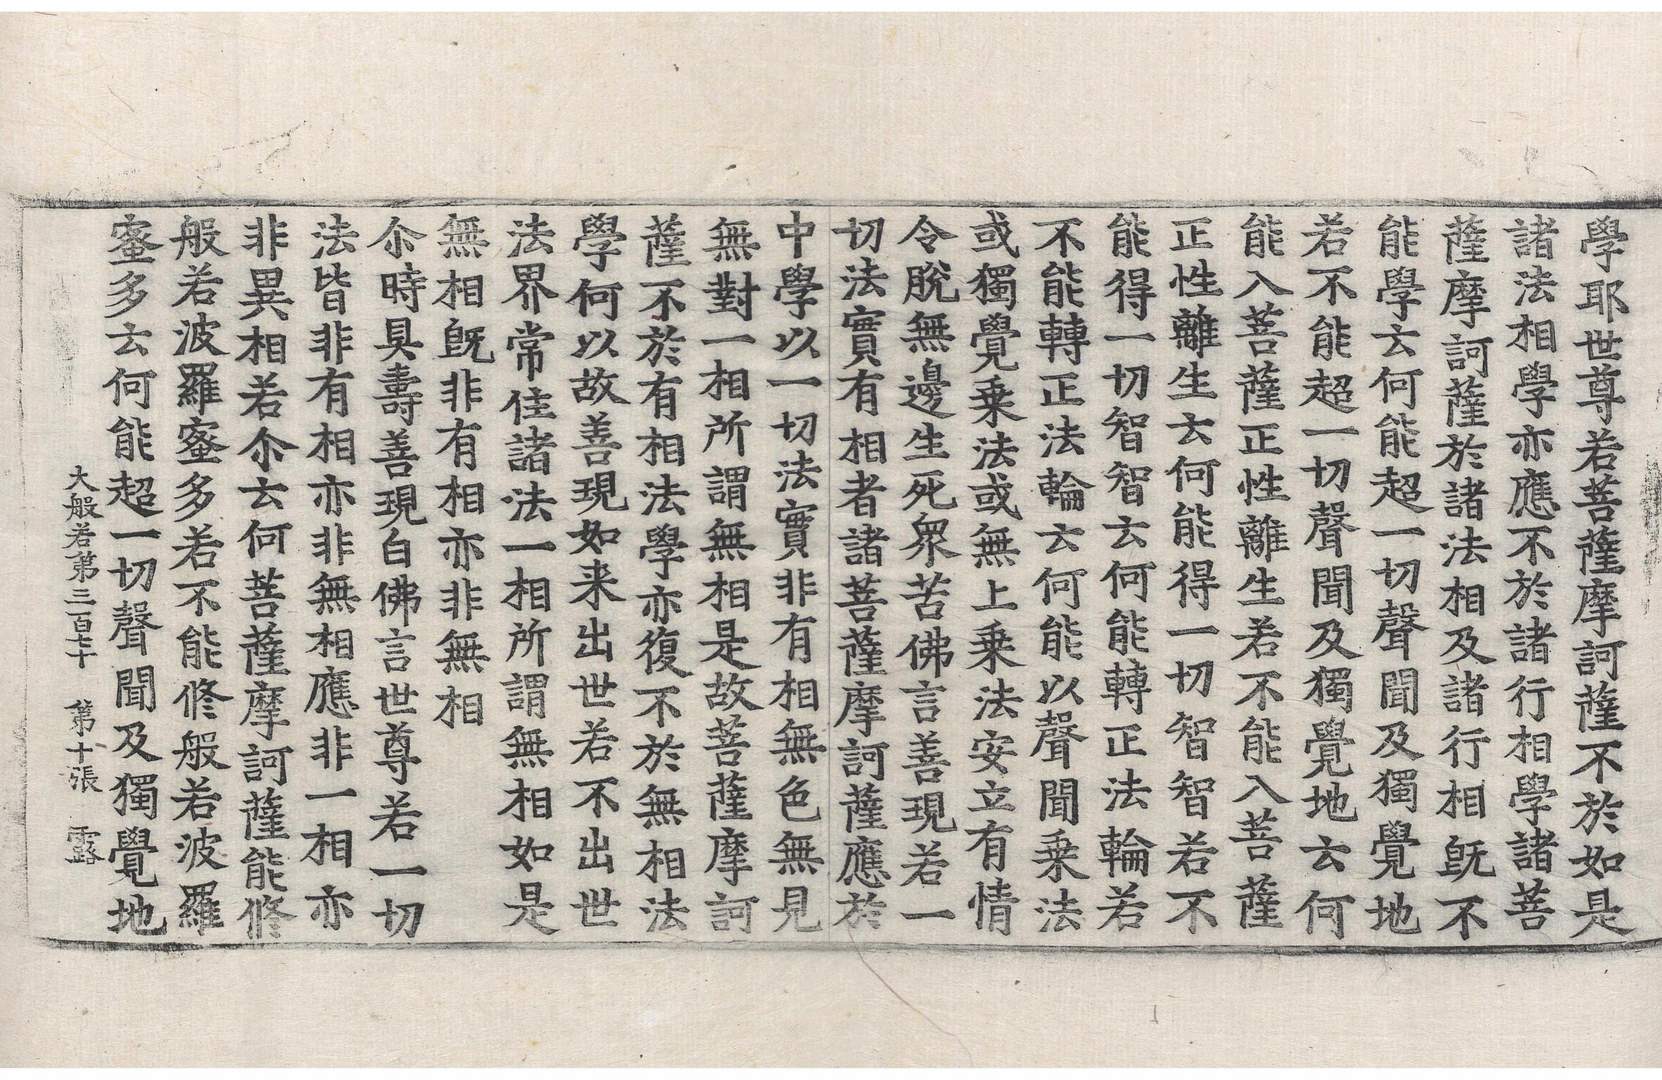 學耶世尊若菩薩摩訶薩不於如是
諸法相學亦應不於諸行相學諸菩
薩摩訶薩於諸法相及諸行相旣不
能學云何能超一切聲聞及獨覺地
若不能超一切聲聞及獨覺地云何
能入菩薩正性離生若不能入菩薩
正性離生云何能得一切智智若不
能得一切智智云何能轉正法輪若
不能轉正法輪云何能以聲聞乗法
或獨覺乗法或無上乗法安立有情
令脫無邊生死衆苦佛言善現若一
切法實有相者諸菩薩摩訶薩應於
中學以一切法實非有相無色無見
無對一相所謂無相是故菩薩摩訶
薩不於有相法學亦復不於無相法
學何以故善現如来出世若不出世
法界常住諸法一相所謂無相如是
無相旣非有相亦非無相
尒時具壽善現白佛言世尊若一切
法皆非有相亦非無相應非一相亦
非異相若尒云何菩薩摩訶薩能修
般若波羅蜜多若不能修般若波羅
蜜多云何能超一切聲聞及獨覺地
大般若第三百七十 第十張 露